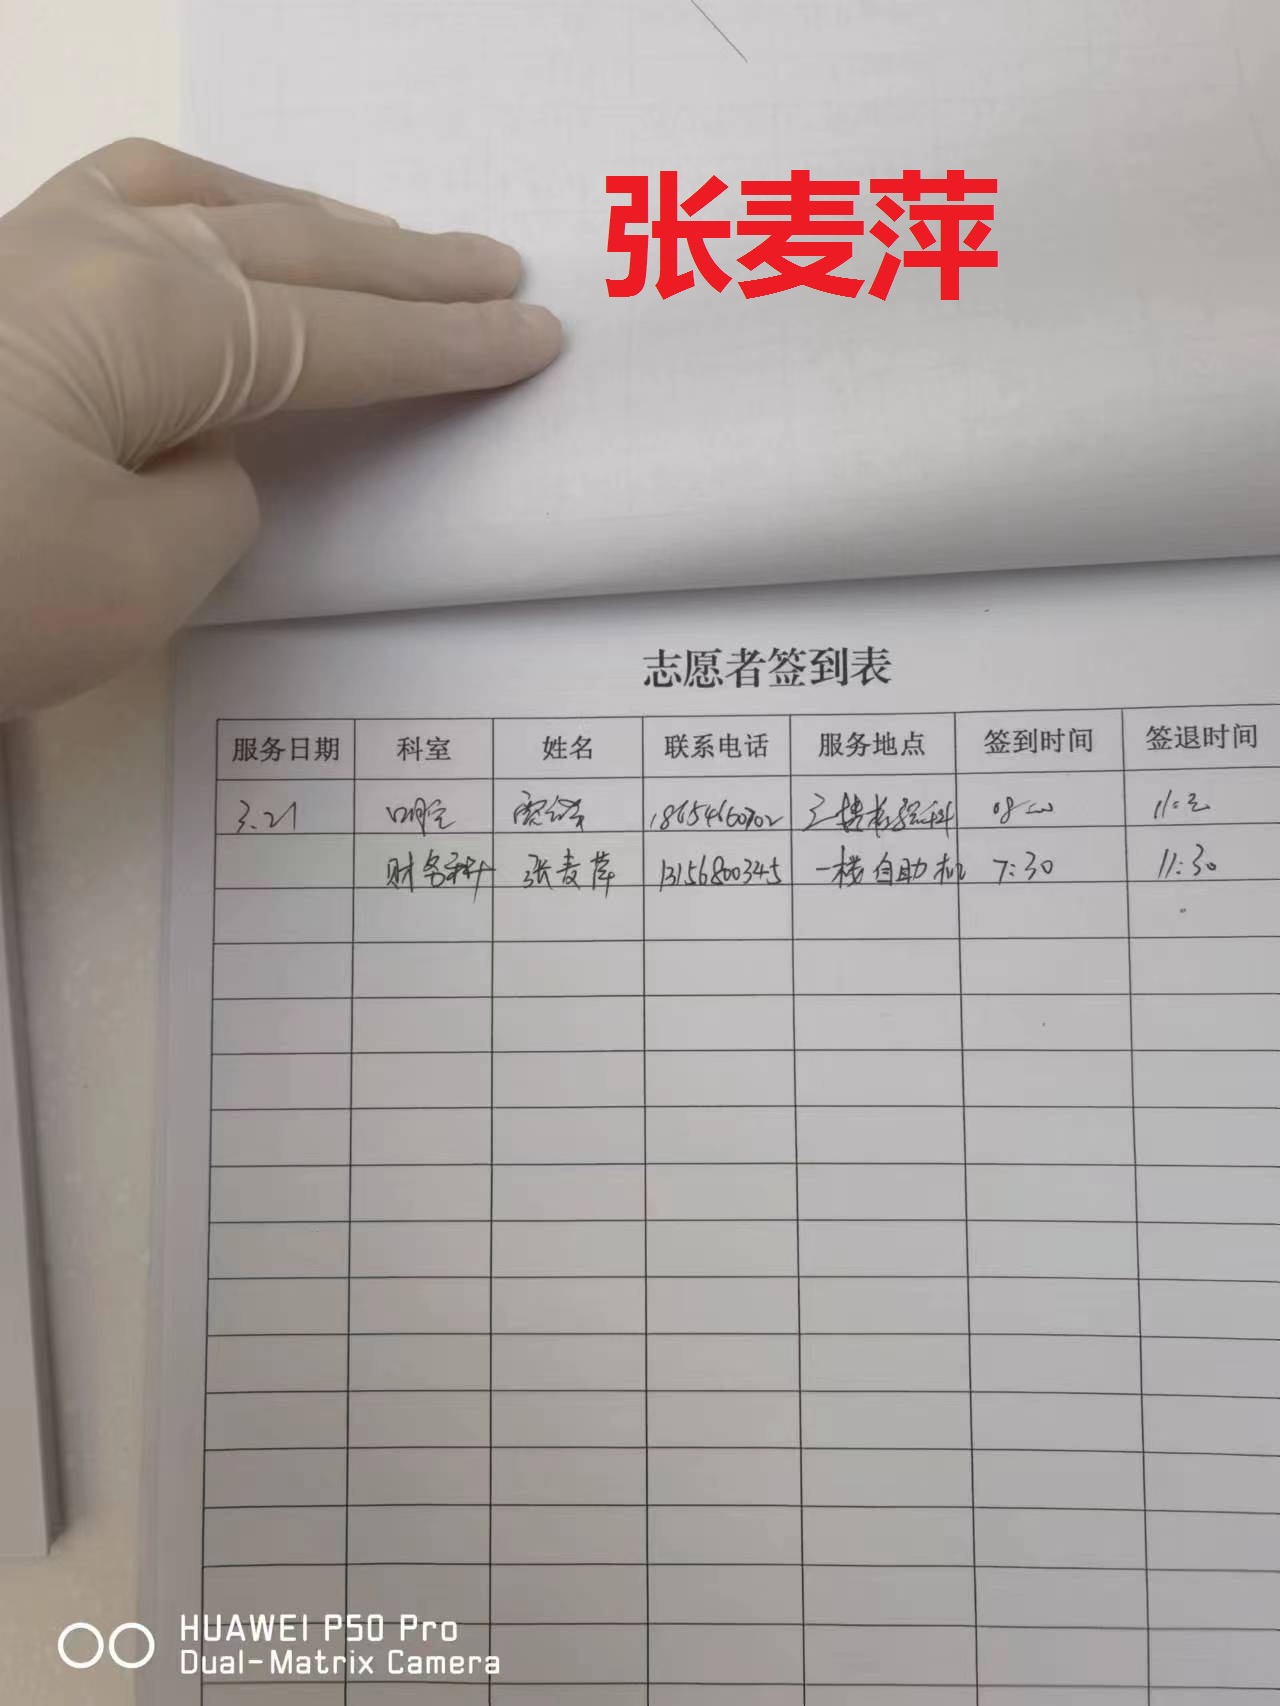 张麦萍
志愿者签到表
服务日期 科室 姓名 联系电话 服务地点 签到时间 签退时间
3.21 口腔 18654660702 三楼检验科 08:00
财务科 张麦萍 13156800345 一楼自助机 7:30 11:30
HUAWEI P50 Pro
Dual-Matrix Camera